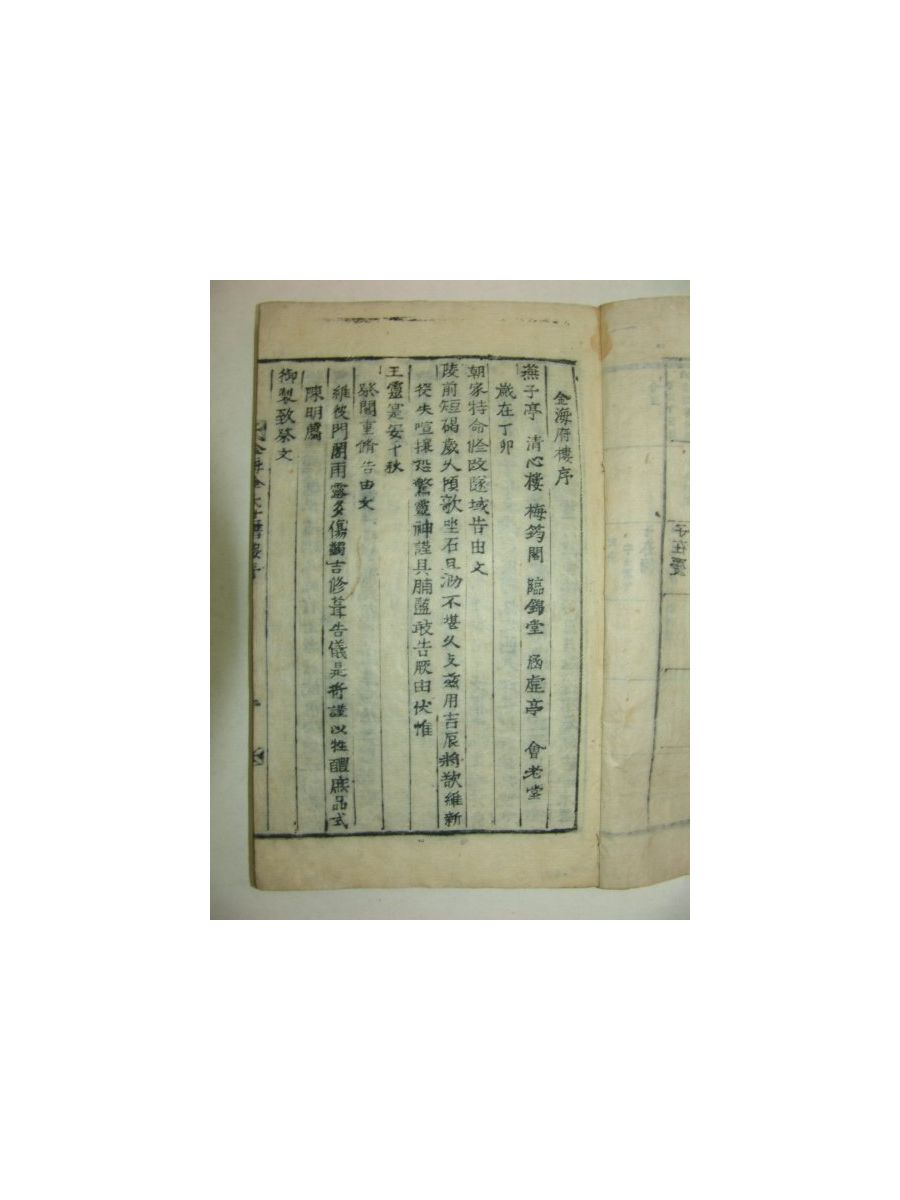 金海府樓序
燕子亭 清心樓 梅筠閣 臨錦堂 涵虛亭 會老堂
歲在丁卯
朝家特命修改隧域告由文
陵前短碣歲久頃欹坐石且泐不堪久支茲用吉辰將欲維新
從失喧攘恐驚靈神謹具脯醢敢告厥由伏惟
王靈寔安千秋
閣重脩告由文
維後門閣雨露多傷蠲吉修葺告儀是將謹以牲醴庶品式
陳明薦
御製致祭文
子在